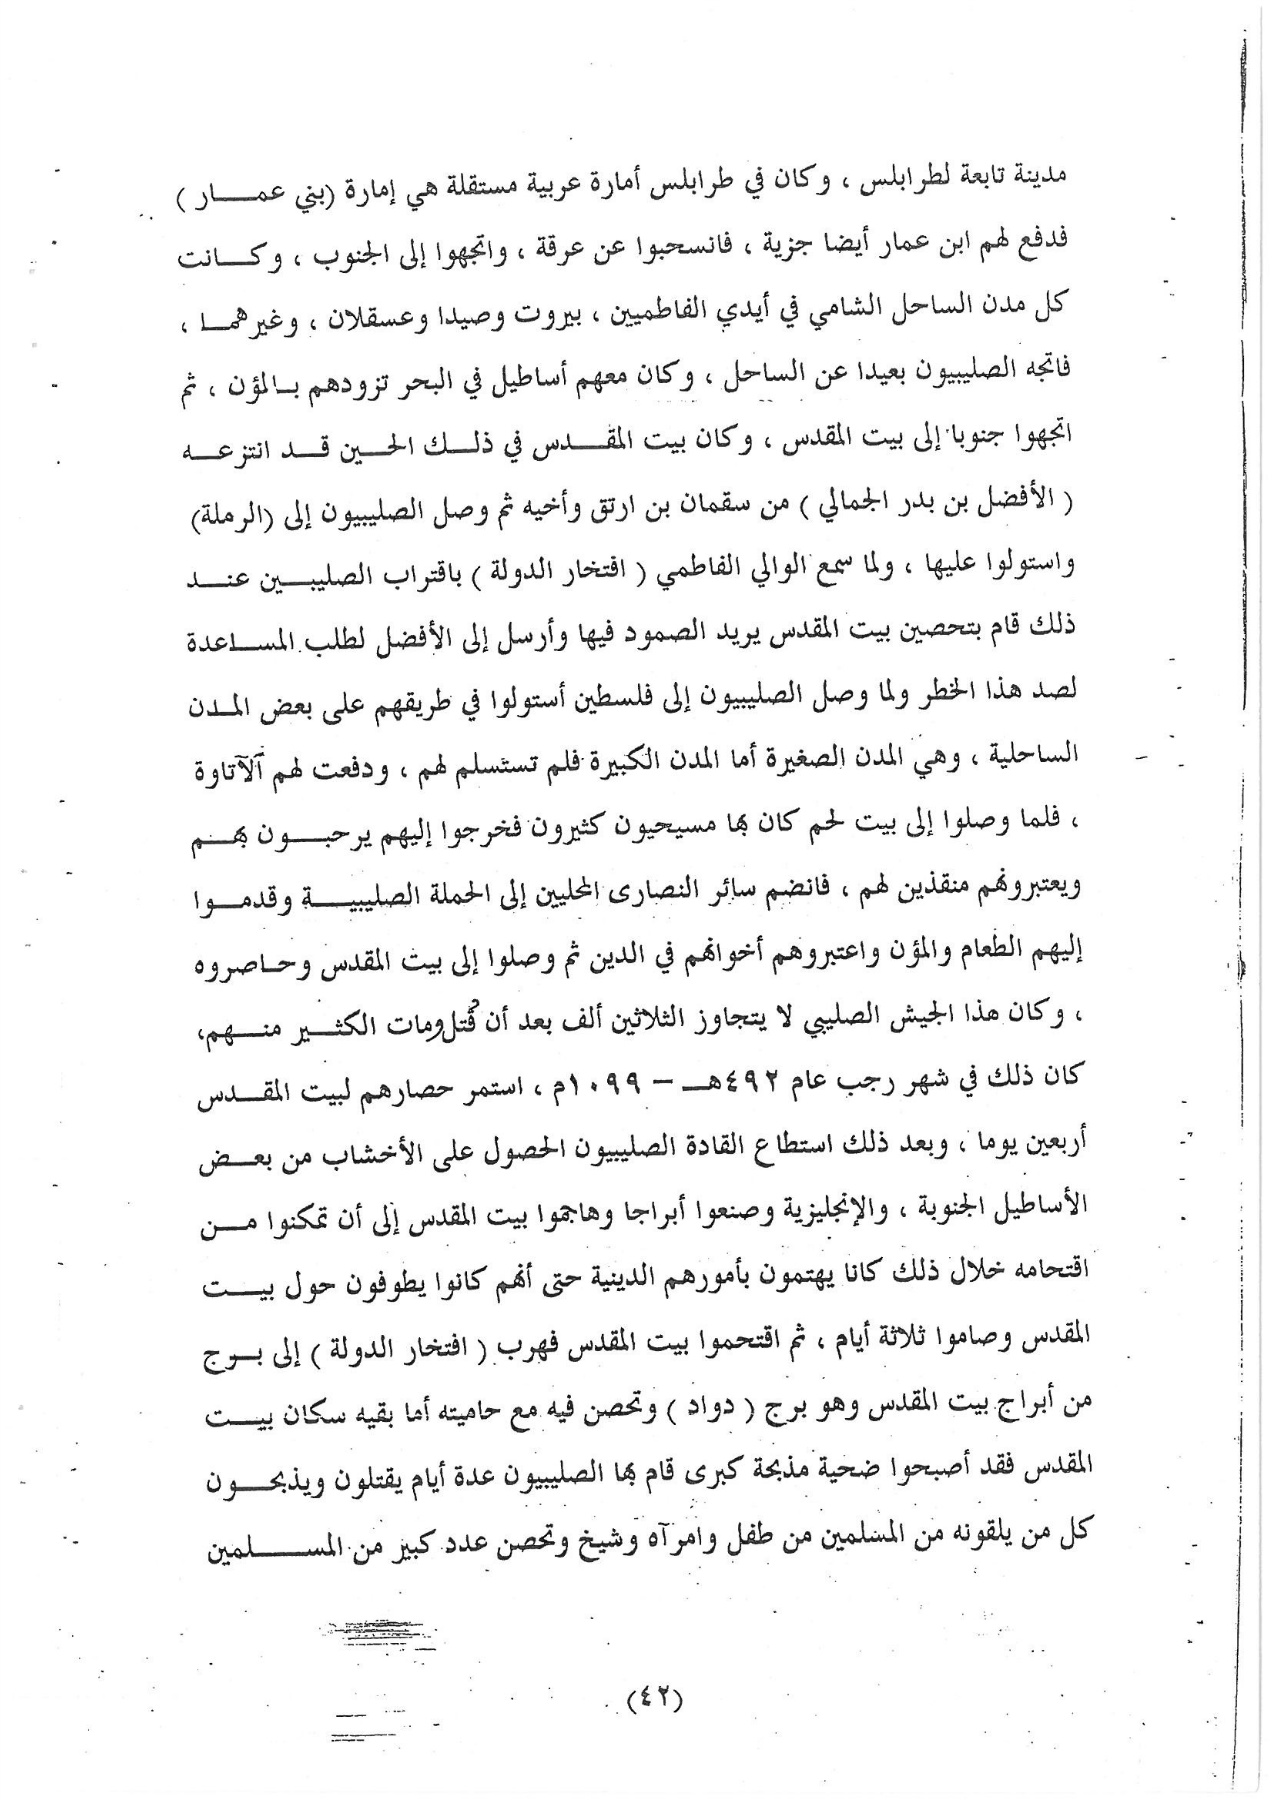 مدينة تابعة لطرابلس ، وكان في طرابلس أمارة عربية مستقلة هي إمارة (بني عمـــار )
فدفع لهم ابن عمار أيضا جزية ، فانسحبوا عن عرقة ، واتجهوا إلى الجنوب ، وكـــانت
كل مدن الساحل الشامي في أيدي الفاطميين ، بيروت وصيدا وعسقلان ، وغيرهمـا ،
فاتجه الصليبيون بعيدا عن الساحل ، وكان معهم أساطيل في البحر تزودهم بـالمؤن ، ثم
اتجهوا جنوبا إلى بيت المقدس ، وكان بيت المقــدس في ذلــك الحــين قــد انتزعــه
( الأفضل بن بدر الجمالي ) من سقمان بن ارتق وأخيه ثم وصل الصليبيون إلى (الرملة)
واستولوا عليها ، ولما سمع الوالي الفاطمي ( افتخار الدولة ) باقتراب الصليبــين عنــد
ذلك قام بتحصين بيت المقدس يريد الصمود فيها وأرسل إلى الأفضل لطلب المســاعدة
لصد هذا الخطر ولما وصل الصليبيون إلى فلسطين أستولوا في طريقهم على بعض المـدن
الساحلية ، وهي المدن الصغيرة أما المدن الكبيرة فلم تستسلم لهم ، ودفعت لهم الآتاوة
، فلما وصلوا إلى بيت لحم كان بها مسيحيون كثيرون فخرجوا إليهم يرحبــون بهــم
ويعتبرونهم منقذين لهم ، فانضم سائر النصارى المحليين إلى الحملة الصليبيــة وقدمــوا
إليهم الطعام والمؤن واعتبروهم أخوانهم في الدين ثم وصلوا إلى بيت المقدس وحـاصروه
، وكان هذا الجيش الصليبي لا يتجاوز الثلاثين ألف بعد أن قُتل ومات الكثــير منــهم،
كان ذلك في شهر رجب عام ٤٩٢هــ – ١٠٩٩م ، استمر حصارهم لبيت المقــدس
أربعين يوما ، وبعد ذلك استطاع القادة الصليبيون الحصول على الأخشاب من بعــض
الأساطيل الجنوبة ، والإنجليزية وصنعوا أبراجا وهاجموا بيت المقدس إلى أن تمكنوا مــن
اقتحامه خلال ذلك كانا يهتمون بأمورهم الدينية حتى أنهم كانوا يطوفون حول بيــت
المقدس وصاموا ثلاثة أيام ، ثم اقتحموا بيت المقدس فهرب ( افتخار الدولة ) إلى بــرج
من أبراج بيت المقدس وهو برج ( دواد ) وتحصن فيه مع حاميته أما بقيه سكان بيــت
المقدس فقد أصبحوا ضحية مذبحة كبرى قام بها الصليبيون عدة أيام يقتلون ويذبحــون
كل من يلقونه من المسلمين من طفل وامرآه وشيخ وتحصن عدد كبير من المســـلمين
(٤٢)